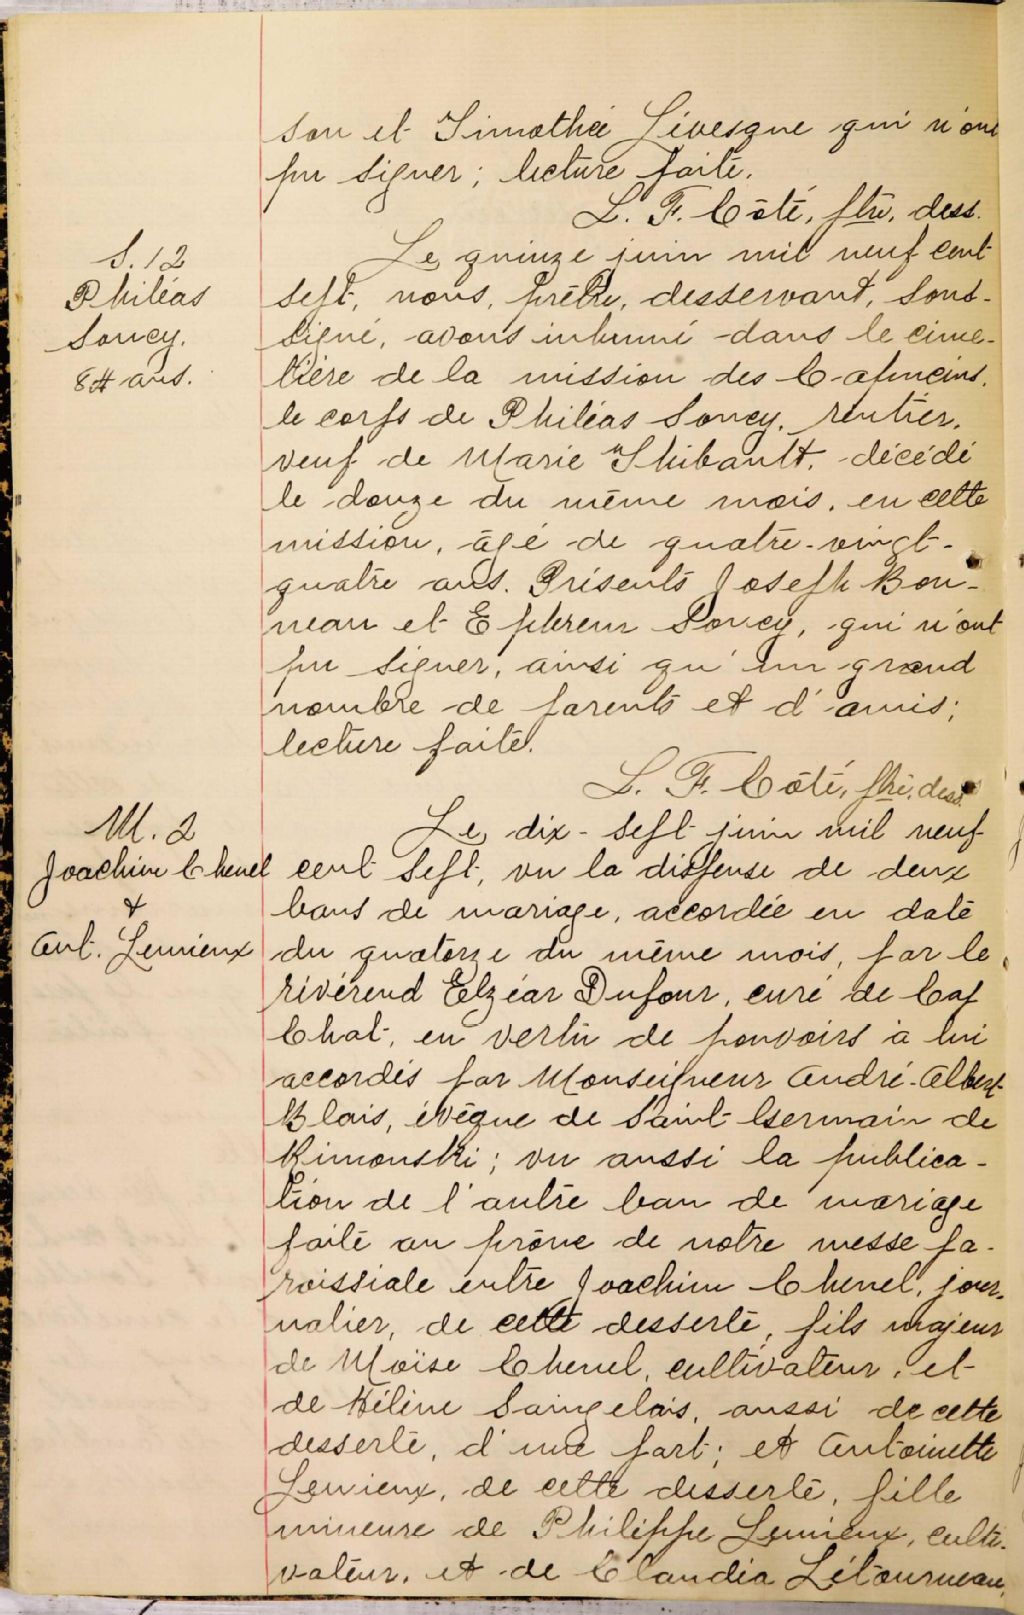 son et Timothée Lévesque qui n'ont
pu signer; lecture faite.
L. F. Côté, ptre, dess.
S. 12
Philéas
Soucy.
84 ans.
Le quinze juin mil neuf cent
sept, nous, prêtre, desservant, sous-
signé, avons inhumé dans le cime-
tière de la mission des Capucins,
le corps de Philéas Soucy, rentier,
veuf de Marie Thibault, décédé
le douze du même mois, en cette
mission, âgé de quatre-vingt-
quatre ans. Présents Joseph Bon-
neau et Ephrem Soucy, qui n'ont
pu signer, ainsi qu'un grand
nombre de parents et d'amis;
lecture faite.
L. F. Côté, ptre, dess.
M. 2
Joachim Chenel
&
Ant. Lemieux
Le dix-sept juin mil neuf
cent sept, vu la dispense de deux
bans de mariage, accordée en date
du quatorze du même mois, par le
révérend Elzéar Dufour, curé de Cap
Chat, en vertu de pouvoirs à lui
accordés par Monseigneur André-Albert
Blais, évêque de Saint Germain de
Rimouski; vu aussi la publica-
tion de l'autre ban de mariage
faite au prône de notre messe pa-
roissiale entre Joachim Chenel, jour-
nalier, de cette desserte, fils majeur
de Moïse Chenel, cultivateur, et
de Hélène Saingelais, aussi de cette
desserte, d'une part; et Antoinette
Lemieux, de cette desserte, fille
mineure de Philippe Lemieux, culti-
vateur, et de Claudia Létourneau,